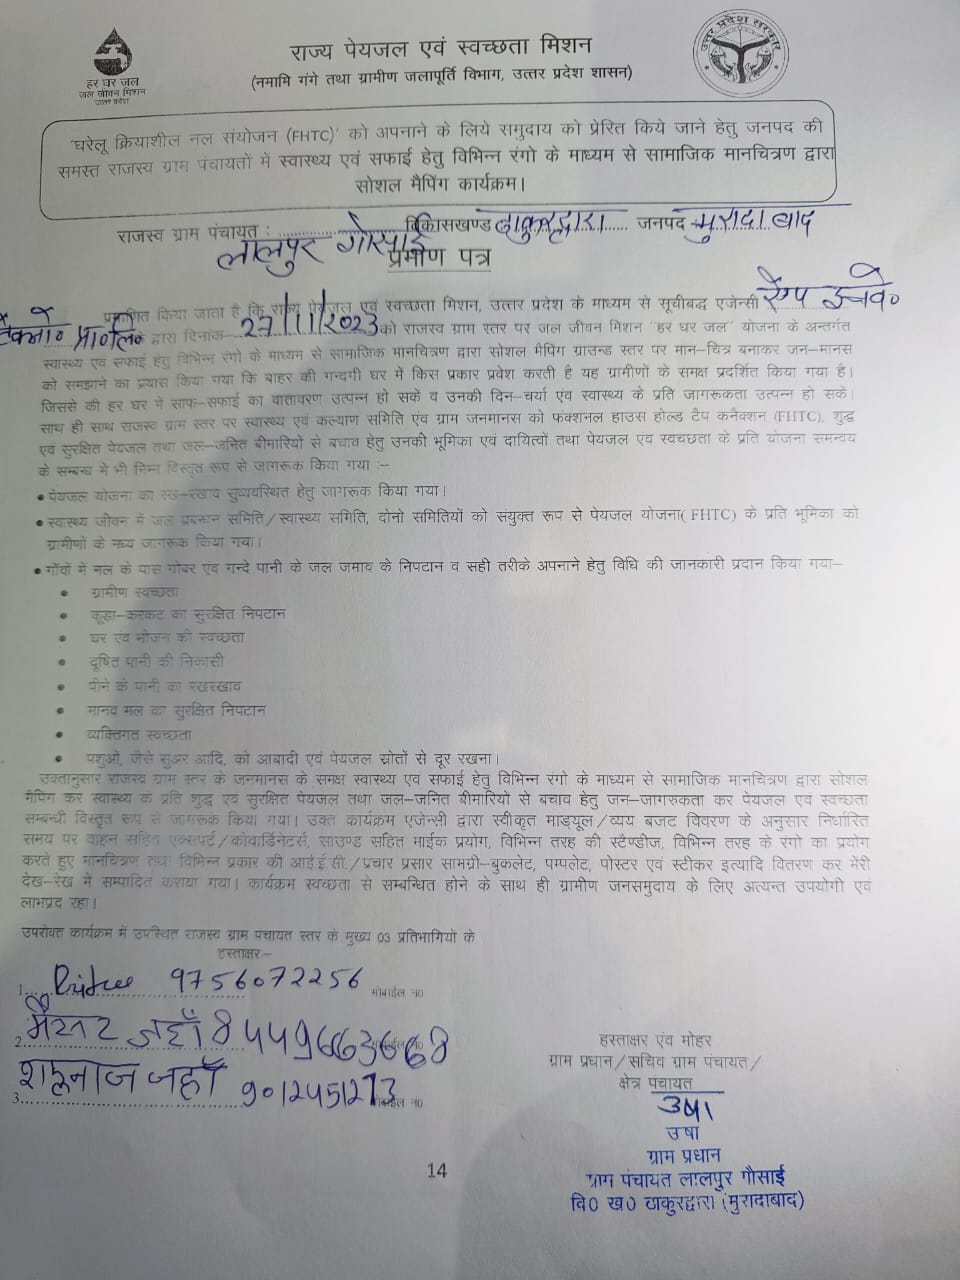 हर घर जल
जल जीवन मिशन
उत्तर प्रदेश
राज्य पेयजल एवं स्वच्छता मिशन
(नमामि गंगे तथा ग्रामीण जलापूर्ति विभाग, उत्तर प्रदेश शासन)
उत्तर प्रदेश सरकार
'घरेलू क्रियाशील नल संयोजन (FHTC)' को अपनाने के लिये समुदाय को प्रेरित किये जाने हेतु जनपद की
समस्त राजस्व ग्राम पंचायतों में स्वास्थ्य एवं सफाई हेतु विभिन्न रंगो के माध्यम से सामाजिक मानचित्रण द्वारा
सोशल मैपिंग कार्यक्रम।
राजस्व ग्राम पंचायत : लालपुर गोसाई विकासखण्ड ठाकुरद्वारा जनपद मुरादाबाद
प्रमाण पत्र
प्रमाणित किया जाता है कि राज्य पेयजल एवं स्वच्छता मिशन, उत्तर प्रदेश के माध्यम से सूचीबद्ध एजेन्सी
टेक्नो० प्रा०लि० द्वारा दिनांक 27/11/2023 को राजस्व ग्राम स्तर पर जल जीवन मिशन "हर घर जल" योजना के अन्तर्गत
स्वास्थ्य एवं सफाई हेतु विभिन्न रंगो के माध्यम से सामाजिक मानचित्रण द्वारा सोशल मैपिंग ग्राउन्ड स्तर पर मान–चित्र बनाकर जन–मानस
को समझाने का प्रयास किया गया कि बाहर की गन्दगी घर में किस प्रकार प्रवेश करती है यह ग्रामीणों के समक्ष प्रदर्शित किया गया है।
जिससे की हर घर में साफ–सफाई का वातावरण उत्पन्न हो सकें व उनकी दिन–चर्या एंव स्वास्थ्य के प्रति जागरूकता उत्पन्न हो सकें।
साथ ही साथ राजस्व ग्राम स्तर पर स्वास्थ्य एवं कल्याण समिति एंव ग्राम जनमानस को फंक्शनल हाउस होल्ड टैप कनैक्शन (FHTC), शुद्ध
एवं सुरक्षित पेयजल तथा जल–जनित बीमारियों से बचाव हेतु उनकी भूमिका एवं दायित्वों तथा पेयजल एंव स्वचछता के प्रति योजना समन्वय
के सम्बन्ध में भी निम्न विस्तृत रूप से जागरूक किया गया :–
• पेयजल योजना का रख–रखाव सुव्यवस्थित हेतु जागरूक किया गया।
• स्वास्थ्य जीवन में जल प्रबन्धन समिति/स्वास्थ्य समिति, दोनो समितियों को संयुक्त रूप से पेयजल योजना( FHTC) के प्रति भूमिका को
ग्रामीणों के मध्य जागरूक किया गया।
• गाँवों में नल के पास गोबर एंव गन्दे पानी के जल जमाव के निपटान व सही तरीके अपनाने हेतु विधि की जानकारी प्रदान किया गया–
• ग्रामीण स्वच्छता
• कूड़ा–करकट का सुरक्षित निपटान
• घर एवं भोजन की स्वच्छता
• दूषित पानी की निकासी
• पीने के पानी का रखरखाव
• मानव मल का सुरक्षित निपटान
• व्यक्तिगत स्वच्छता
• पशुओं, जैसे सुअर आदि, को आबादी एवं पेयजल स्रोतों से दूर रखना।
उक्तानुसार राजस्व ग्राम स्तर के जनमानस के समक्ष स्वास्थ्य एवं सफाई हेतु विभिन्न रंगो के माध्यम से सामाजिक मानचित्रण द्वारा सोशल
मैपिंग कर स्वास्थ्य के प्रति शुद्ध एवं सुरक्षित पेयजल तथा जल–जनित बीमारियों से बचाव हेतु जन–जागरुकता कर पेयजल एवं स्वच्छता
सम्बन्धी विस्तृत रूप से जागरूक किया गया। उक्त कार्यक्रम एजेन्सी द्वारा स्वीकृत माड्यूल/व्यय बजट विवरण के अनुसार निर्धारित
समय पर वाहन सहित एक्सपर्ट/कोवार्डिनेटर्स, साउण्ड सहित माईक प्रयोग, विभिन्न तरह की स्टैण्डीज, विभिन्न तरह के रंगो का प्रयोग
करते हुए मानचित्रण तथा विभिन्न प्रकार की आई.ई.सी./प्रचार प्रसार सामग्री–बुकलेट, पम्पलेट, पोस्टर एवं स्टीकर इत्यादि वितरण कर मेरी
देख–रेख में सम्पादित कराया गया। कार्यक्रम स्वच्छता से सम्बन्धित होने के साथ ही ग्रामीण जनसमुदाय के लिए अत्यन्त उपयोगी एवं
लाभप्रद रहा।
उपरोक्त कार्यक्रम में उपस्थित राजस्व ग्राम पंचायत स्तर के मुख्य 03 प्रतिभागियों के
हस्ताक्षर:–
1. 9756072256 मोबाईल न0
2. जहाँ
3. शहनाज जहाँ 9012451273 मोबाईल न0
हस्ताक्षर एंव मोहर
ग्राम प्रधान/सचिव ग्राम पंचायत/
क्षेत्र पंचायत
उषा
उषा
ग्राम प्रधान
ग्राम पंचायत लालपुर गौसाई
वि0 ख0 ठाकुरद्वारा (मुरादाबाद)
14